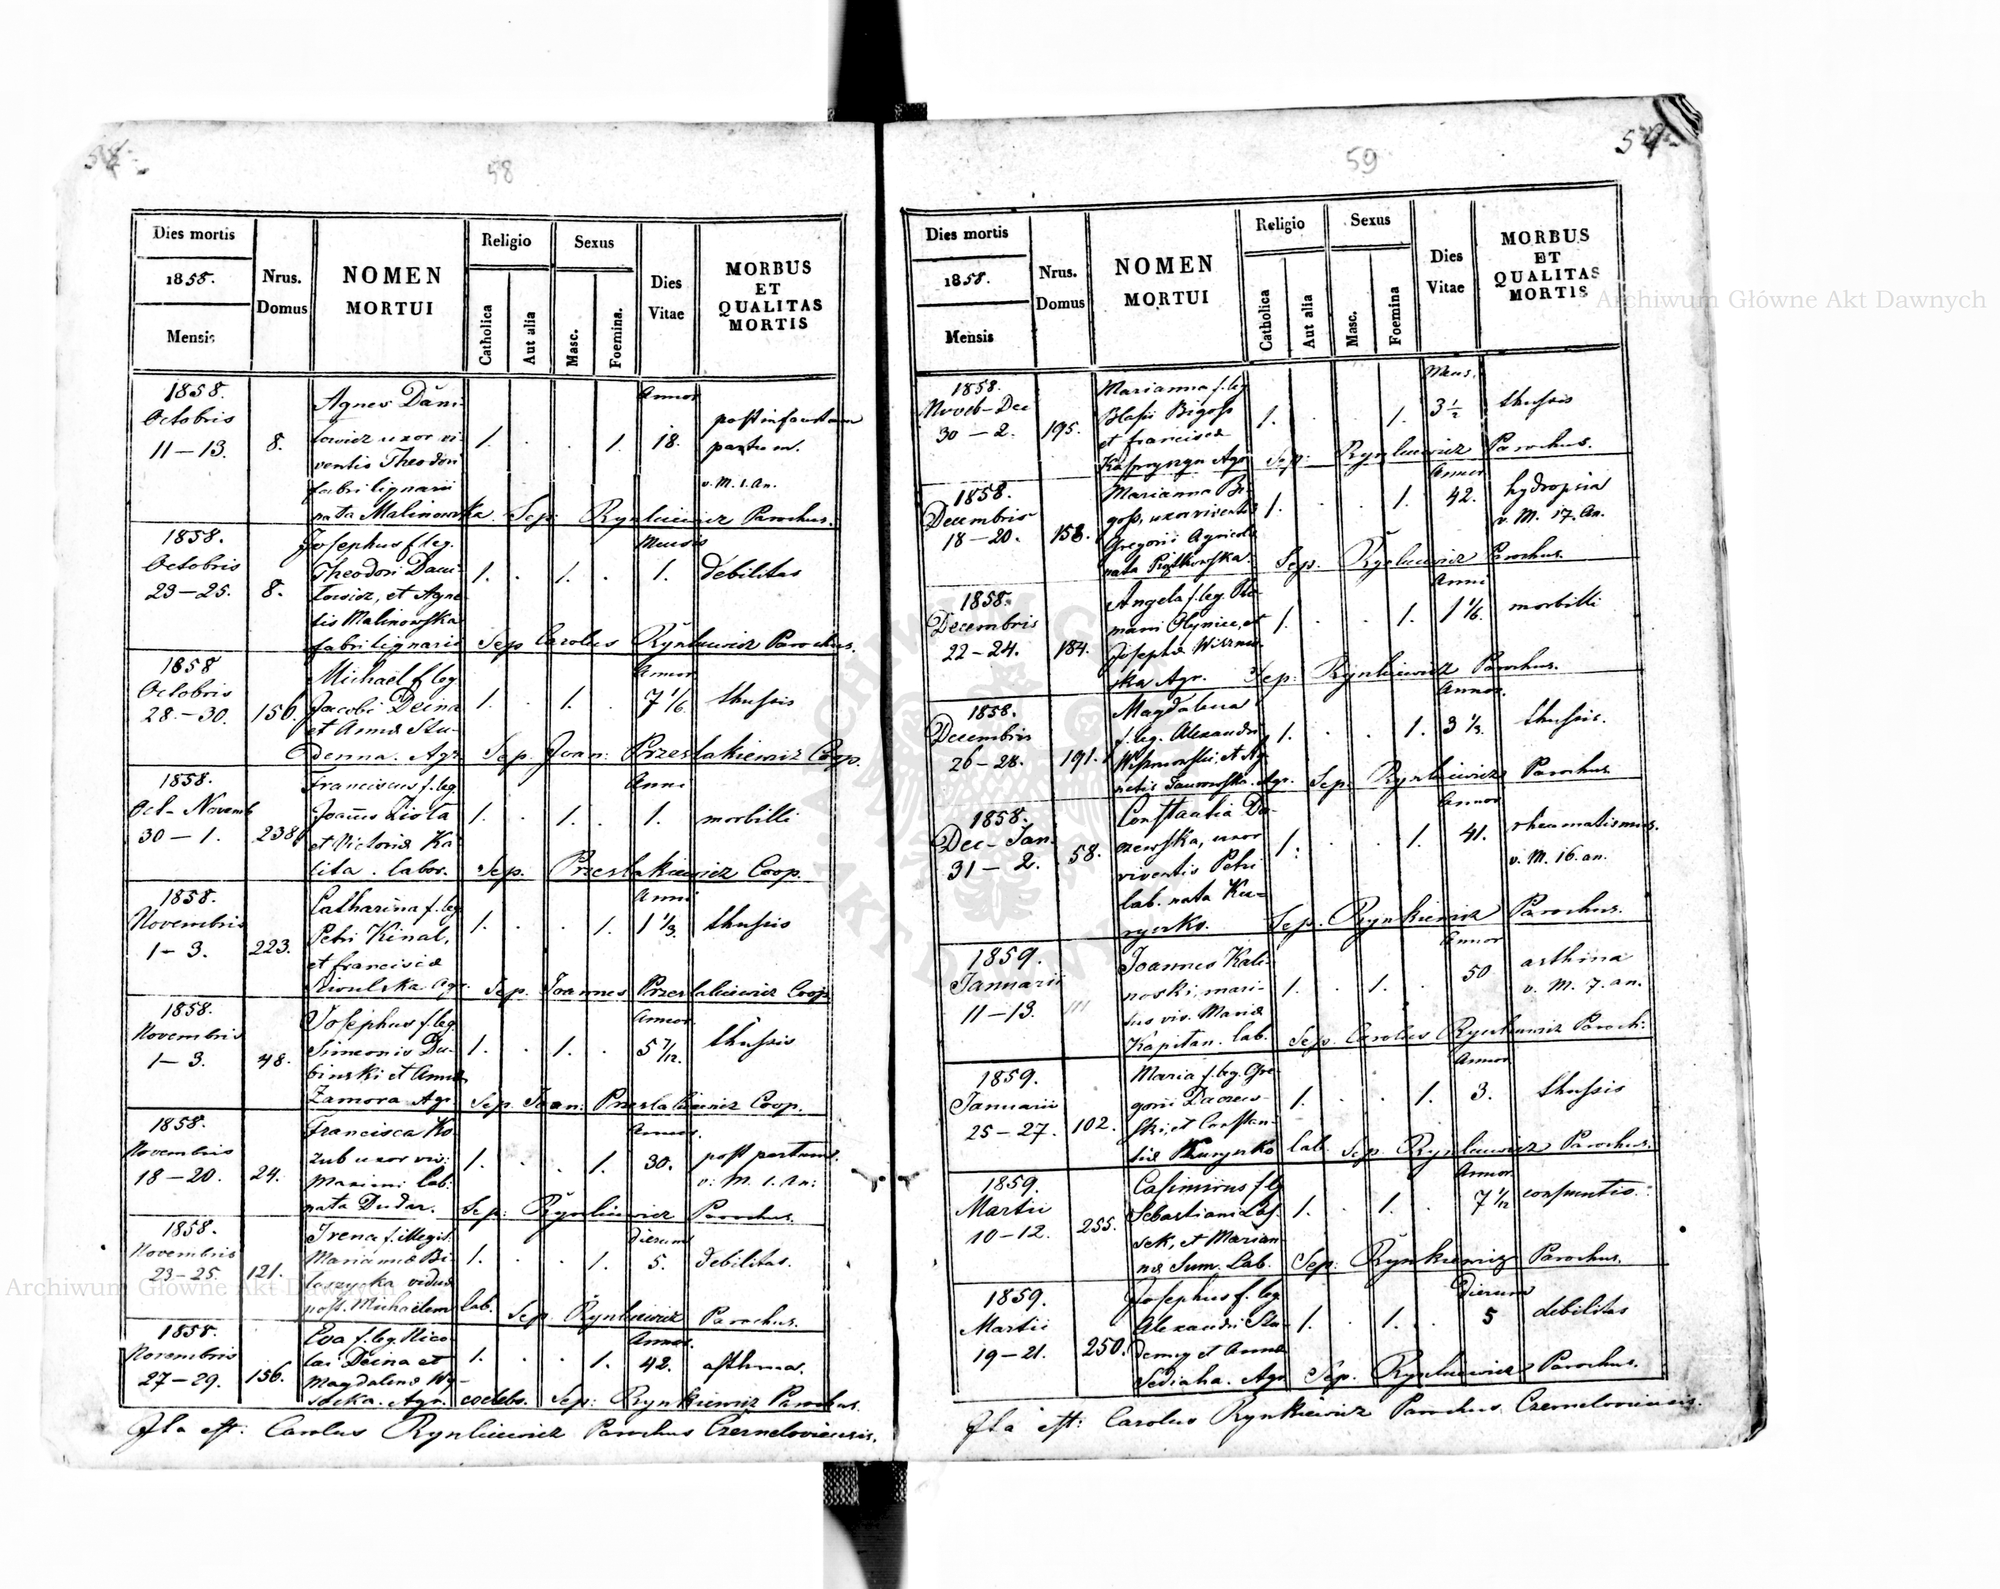 58
Dies mortis
1858.
Mensis
Nrus.
Domus
NOMEN
MORTUI
Religio
Catholica
Aut alia
Sexus
Masc.
Foemina.
Dies
Vitae
MORBUS
ET
QUALITAS
MORTIS
1858.
Octobris
11 – 13.
8.
Agnes Dani-
lowicz uxor vi-
ventis Theodori
fabri lignarii
nata Malinowska
1. . . 1.
Annor
18.
post infaustum
partum.
v. M. 1. An.
Sep. Rynkiewicz Parochus.
1858.
Octobris
23 – 25.
8.
Josephus f. leg.
Theodori Dani-
lowicz, et Agne-
tis Malinowska
fabri lignarii
1. . 1. .
Mensis
1.
debilitas
Sep. Carolus Rynkiewicz Parochus.
1858
Octobris
28. – 30.
156.
Michael f. leg
Jacobi Deina
et Annæ Stu-
denna. Agr.
1. . 1. .
Annor
7 1/6
thussis
Sep. Joan: Przeslakiewicz Coop.
1858.
Oct – Novemb
30 – 1.
238
Franciscus f. leg.
Joannis Ziota
et Victoriæ Ka
lita. labor.
1. . 1. .
Anni
1.
morbilli
Sep. Przeslakiewicz Coop.
1858.
Novembris
1 – 3.
223.
Catharina f. leg
Petri Kinal,
et Franciscæ
1. . . 1.
Anni
1 1/3.
thussis
Sep. Joannes Przeslakiewicz Coop.
1858.
Novembris
1 – 3.
48.
Josephus f. leg.
Simeonis Du-
binski et Annæ
Zamora Agr.
1. . 1. .
Annor.
5 7/12.
thussis
Sep. Joan: Przeslakiewicz Coop.
1858.
Novembris
18 – 20.
24.
Francisca Ko
zub uxor viv:
Maximi lab.
nata Dudar.
1. . . 1.
Annor.
30.
post partum.
v: M. 1. An:
Sep: Rynkiewicz Parochus.
1858.
Novembris
23 – 25.
121.
Irena f. illegit.
Mariannæ Bi-
laszycka viduæ
post. Michaelem lab.
1. . . 1.
Dierum
5.
debilitas.
Sep. Rynkiewicz Parochus.
1858.
Novembris
27 – 29.
156.
Eva f. leg. Nico
lai Deina et
Magdalenæ Wy-
socka. Agr. coelebs.
1. . . 1.
Annor.
42.
asthma.
Sep: Rynkiewicz Parochus.
Ita est: Carolus Rynkiewicz Parochus Czerneloviensis.
59
Dies mortis
1858.
Mensis
Nrus.
Domus
NOMEN
MORTUI
Religio
Catholica
Aut alia
Sexus
Masc.
Foemina
Dies
Vitae
MORBUS
ET
QUALITAS
MORTIS
1858.
Noveb – Dec
30 – 2.
195.
Marianna f. leg
Blasii Bigoss
et Franciscæ
Kasprzyszyn Agr.
1. . . 1.
Mens.
3 1/2
thussis
Sep: Rynkiewicz Parochus.
1858.
Decembris
18 – 20.
158.
Marianna Bi
goss, uxor viventis
Gregorii Agricolæ
nata Piątkowska.
1. . . 1.
Annor
42.
hydropsia
v. M. 17. An.
Sep. Rynkiewicz Parochus.
1858.
Decembris
22 – 24.
184.
Angela f. leg. Ro-
mani Olynice, et
Josephæ Wiszniw-
ska Agr.
1. . . 1.
Anni
1 1/6.
morbilli
Sep: Rynkiewicz Parochus.
1858.
Decembris
26 – 28.
191.
Magdalena
f. leg. Alexandri
1. . . 1.
Annor.
3 1/3.
thussis.
Sep: Rynkiewicz Parochus
1858.
Dec – Jan.
31 – 2.
58.
Constantia Da-
czewska, uxor
viventis Petri
lab. nata Ku=
ryerko.
1. . . 1.
Annor
41.
rheumatismus.
v. M. 16. an.
Sep. Rynkiewicz Parochus.
1859.
Januarii
11 – 13.
111
Joannes Kali-
noski, mari-
tus viv. Mariæ
Kapitan. lab.
1. . 1. .
Annor
50
asthma
v. M. 7. an.
Sep. Carolus Rynkiewicz Paroch:
1859.
Januarii
25 – 27.
102.
Maria f. leg. Gre
gorii Daczew-
ski, et Constan-
tiæ Kuryerko lab.
1. . . 1.
Annor
3.
thussis
Sep. Rynkiewicz Parochus.
1859.
Martii
10 – 12.
255.
Casimirus f. leg
Sebastiani Las-
sek, et Marian-
næ Sum. Lab.
1. . 1. .
Annor
7 1/12
consumtio.
Sep: Rynkiewicz Parochus.
1859.
Martii
19 – 21.
250.
Josephus f. leg
Alexandri Stu-
denny et Annæ
Sediaha. Agr.
1. . 1. .
Dierum
5
debilitas
Sep. Rynkiewicz Parochus.
Ita est: Carolus Rynkiewicz Parochus Czerneloviensis.
Archiwum Główne Akt Dawnych
Archiwum Główne Akt Dawnych